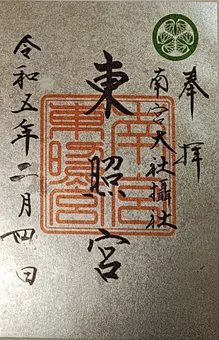 奉拝
南宮大社攝社
東照宮
令和五年二月四日
南宮
東照宮